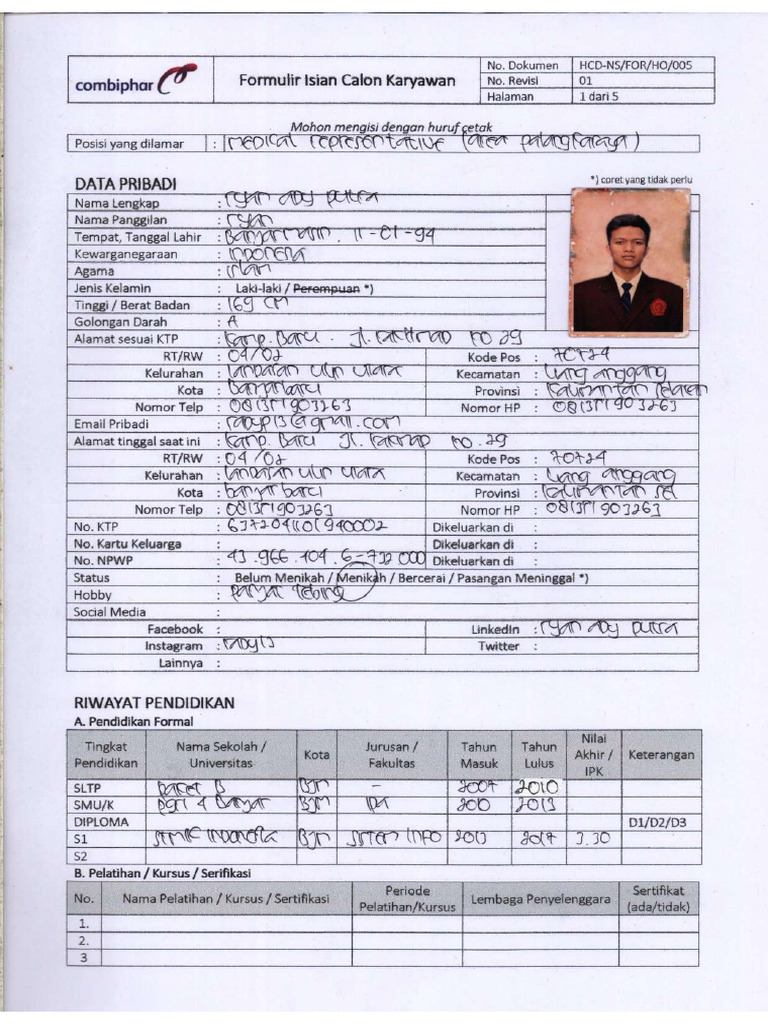 combiphar
Formulir Isian Calon Karyawan
No. Dokumen HCD-NS/FOR/HO/005
No. Revisi 01
Halaman 1 dari 5
Mohon mengisi dengan huruf cetak
Posisi yang dilamar : medical representative (area palangkaraya)
DATA PRIBADI
*) coret yang tidak perlu
Nama Lengkap : ryan ady putra
Nama Panggilan : ryan
Tempat, Tanggal Lahir : Banjarmasin, 11-01-94
Kewarganegaraan : INDONESIA
Agama : islam
Jenis Kelamin : Laki-laki / Perempuan *)
Tinggi / Berat Badan : 169 CM
Golongan Darah : A
Alamat sesuai KTP : kamp. Baru. Jl. no 29
RT/RW : 04/02 Kode Pos : 70724
Kelurahan : landasan ulin utara Kecamatan : liang anggang
Kota : banjarbaru Provinsi : kalimantan selatan
Nomor Telp : Nomor HP :
Email Pribadi : @gmail.com
Alamat tinggal saat ini : kamp. Baru Jl. no. 29
RT/RW : 04/02 Kode Pos : 70724
Kelurahan : landasan ulin utara Kecamatan : liang anggang
Kota : banjarbaru Provinsi : kalimantan sel
Nomor Telp : Nomor HP :
No. KTP : 6372041101940002 Dikeluarkan di :
No. Kartu Keluarga : Dikeluarkan di :
No. NPWP : 43.966.404.6-732 000 Dikeluarkan di :
Status : Belum Menikah / Menikah / Bercerai / Pasangan Meninggal *)
Hobby : panjat tebing
Social Media :
Facebook : LinkedIn : ryan ady putra
Instagram : rady13 Twitter :
Lainnya :
RIWAYAT PENDIDIKAN
A. Pendidikan Formal
Tingkat Pendidikan Nama Sekolah / Universitas Kota Jurusan / Fakultas Tahun Masuk Tahun Lulus Nilai Akhir / IPK Keterangan
SLTP paket B BJM - 2007 2010
SMU/K pgri 4 Banjar BJM IPA 2010 2013
DIPLOMA D1/D2/D3
S1 STMIK INDONESIA BJM SISTEM INFO 2013 2017 3.30
S2
B. Pelatihan / Kursus / Serifikasi
No. Nama Pelatihan / Kursus / Sertifikasi Periode Pelatihan/Kursus Lembaga Penyelenggara Sertifikat (ada/tidak)
1.
2.
3